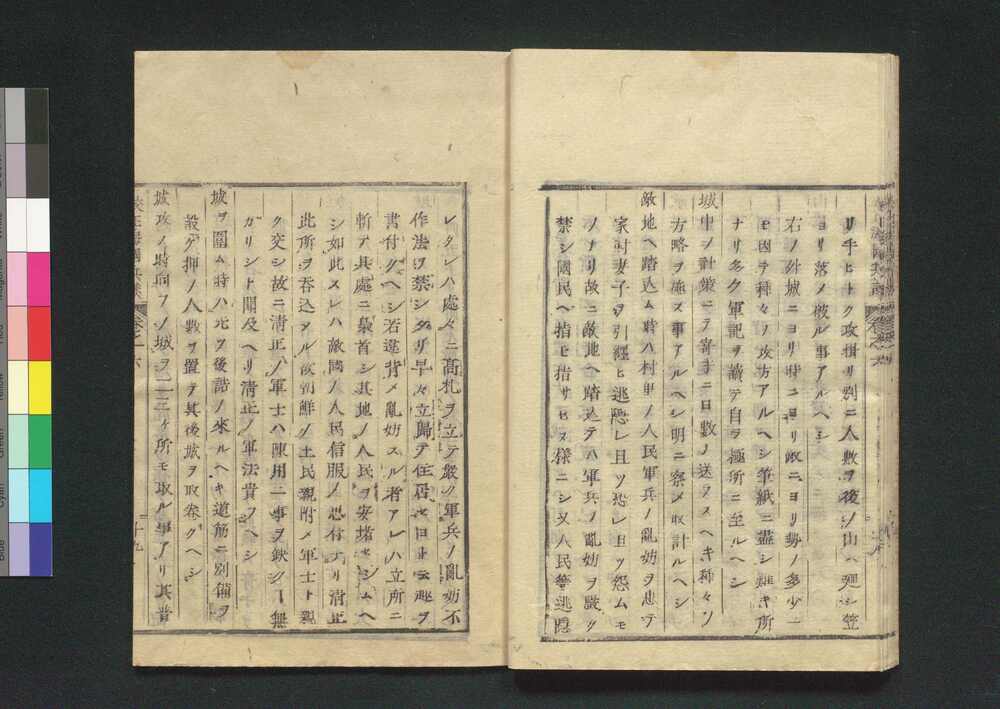 リ手ヒトク攻揖リ別ニ人數ヲ後ノ山ヘ廻シ笠
ヨリ落ノ破ル事アルヘシ
右ノ外城ニヨリ時ニヨリ敵ニヨリ勢ノ多少ニ
モ因テ種々ノ攻方アルヘシ筆紙ニ盡シ難キ所
ナリ多ク軍記ヲ讀テ自ラ極所ニ至ルヘシ
城中ノ計策ニテ寄手ニ日數ノ送ラスヘキ種々ノ
方略ヲ施ス事アルヘシ明ニ察メ取計ルヘシ
敵地ヘ踏込ム時ハ村里ノ人民軍兵ノ亂妨ヲ悲テ
家財妻子ヲ引纏ヒ逃隠レ且ツ恐レ且ツ怨ムモ
ノナリ故ニ敵地ヘ踏込テハ軍兵ノ亂妨ヲ嚴ク
禁シ國民ヘ指モ指サセヌ様ニシ又人民等逃隠
レタレハ處々ニ髙札ヲ立テ嚴ク軍兵ノ亂妨不
作法ヲ禁シタリ早々立歸テ住居セヨ ト云趣ヲ
書付クヘシ若違背メ亂妨スル者アレハ立所ニ
斬テ其處ニ梟首シ其地ノ人民ヲ安堵セシムヘ
シ如此スレハ敵國ノ人民信服ノ思付ナリ清正
此所ヲ吞込タル故朝鮮ノ土民親附メ軍士ト親
ク交シ故ニ清正ノ軍士ハ陳用ニ事ヲ欽クㄱ無
ガリシト聞及ヘリ清正ノ軍法貴フヘシ
城ヲ圍ム時ハ先ヲ後詰ノ來ルヘキ道筋ニ別備ヲ
設ケ押ノ人數ヲ置テ其後城ヲ取巻クヘシ
城攻ノ時向フノ城ヲ二三ヶ所モ取ル事アリ其昔
卷之六
十九